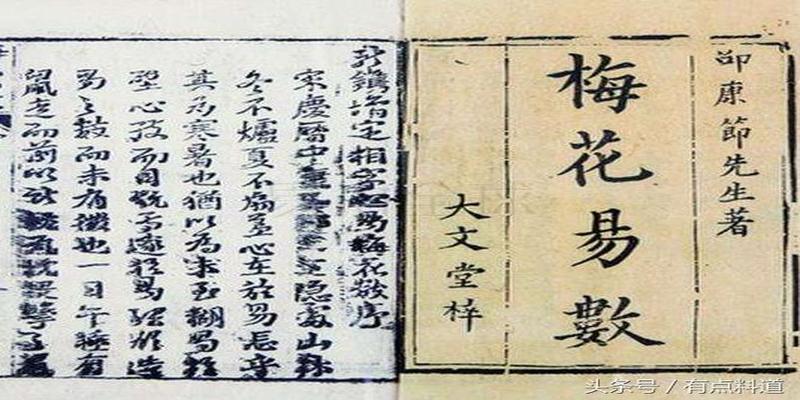 邵康節先生著
梅花易數
大文堂梓
新鐫定相字心易梅花数序
宋慶曆中隱處山林
冬不爐夏不扇蓋心在於易忘乎
其為寒暑也猶以為未至糊易於
壁心致而目玩焉邃於易理欲造
易之数而未有徵也一日午睡有
鼠走而前以所枕瓦枕
头条号 / 有点料道